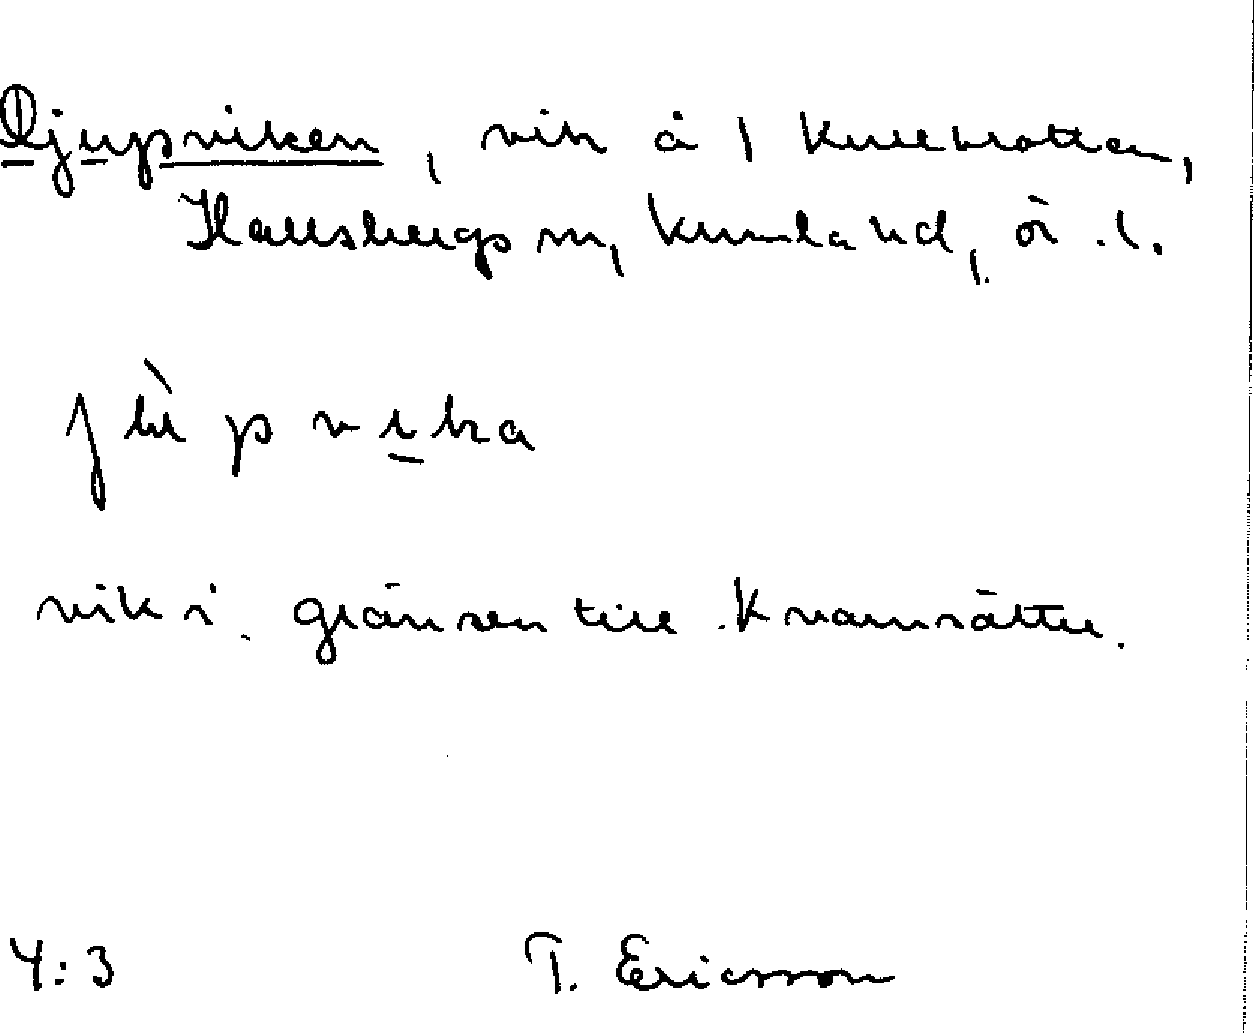 Djupviken, vik å Kullebrotten,
Hallsbergs sn, Kumla hd, ör. l.
vik i gränsen till Kvarnsätter.
4:3 T. Ericsson